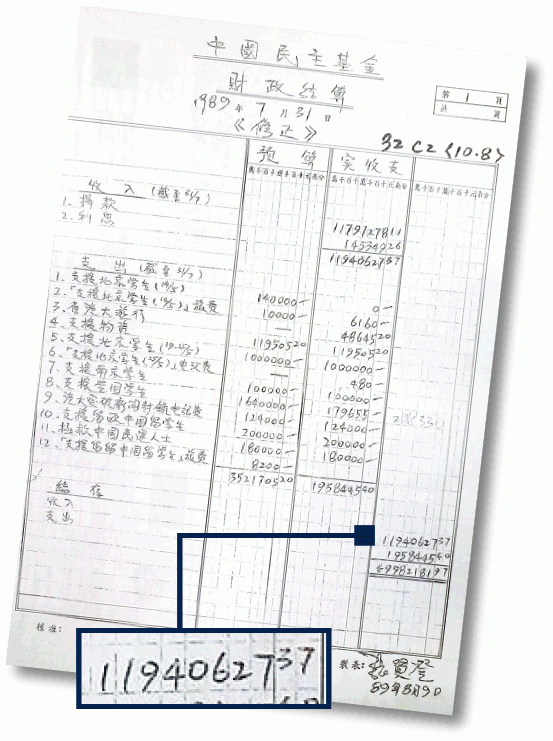 中國民主基金
財政結算
1989年7月31日
《修正》
第 1 頁
共 頁
32 C2 (10.8)
預算 實收支
收入 (截至31/7)
1. 捐款 1179727811
2. 利息 14334926
1194062737
支出 (截至31/7)
1. 支援北京學生 140000— 0—
2.「支援北京學生」旅費 10000— 6160—
3. 香港大遊行 — 4864520
4. 支援物資 11950520 11950520
5. 支援北京學生 1000000— 1000000—
6.「支援北京學生」電話費 — 480—
7. 支援南京學生 100000— 100000—
8. 支援全國學生 1640000— 179655—
9. 港大突破新聞封鎖電話費 124000— 124000—
10. 支援留國中國留學生 200000— 200000—
11. 拯救中國民運人士 180000— 180000—
12.「支援留中國留學生」旅費 8200—
352170520 195844540
結存
收入 1194062737
支出 195844540
$998218197
核准： 製表：
89年8月9日
1194062737